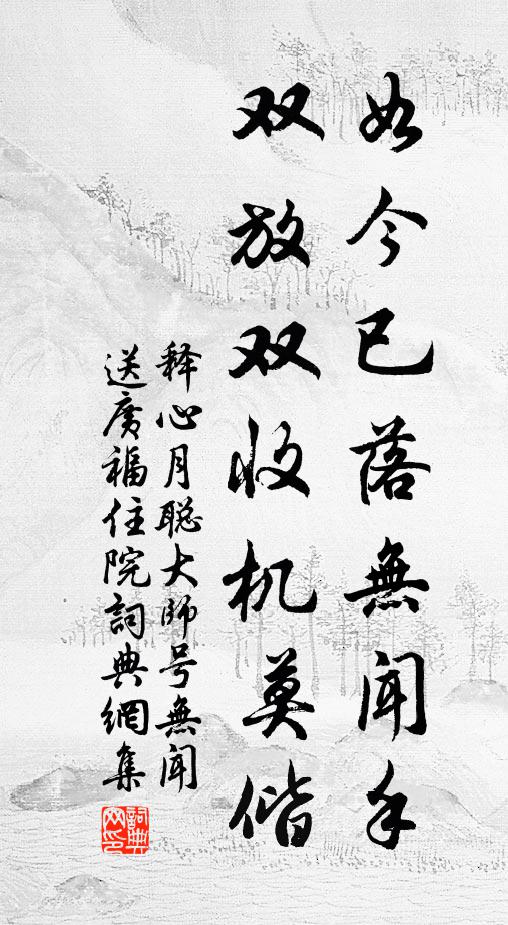 如今已落無聞手
双放双收机莫偕
释心月聪大师号無闻
送广福住院詞典網集
詞典网印